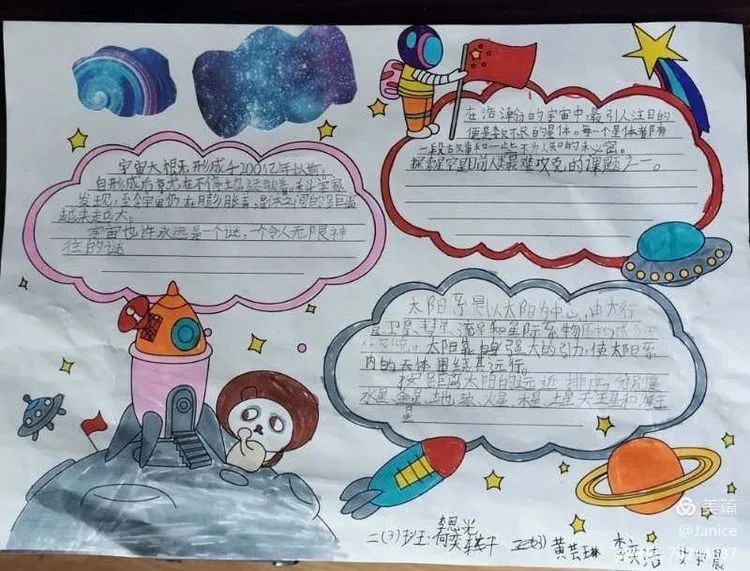 宇宙大概是形成于200亿年以前,
自形成后就在不停地运动着,科学家
发现,至今宇宙仍在膨胀着,星体之间的距离
越来越大。
宇宙也许永远是一个谜,一个令人无限神
往的谜
在浩瀚的宇宙中,最引人注目的
便是数不尽的星体。每一个星体都有
一段故事和一些不为人知的秘密。
探索宇宙是目前人类最难攻克的课题之一。
太阳系是以太阳为中心,由大行
星 卫星 彗星 流星和星际系物
太阳靠强大的引力,使太阳系
内的天体围绕其运行。
按距离太阳的远近排序,分别是
水星 金星 地球 火星 木星 土星 天王星和海王
星
二(3)班 李恩光
黄芸琳 李奕浩
美篇
@Janice